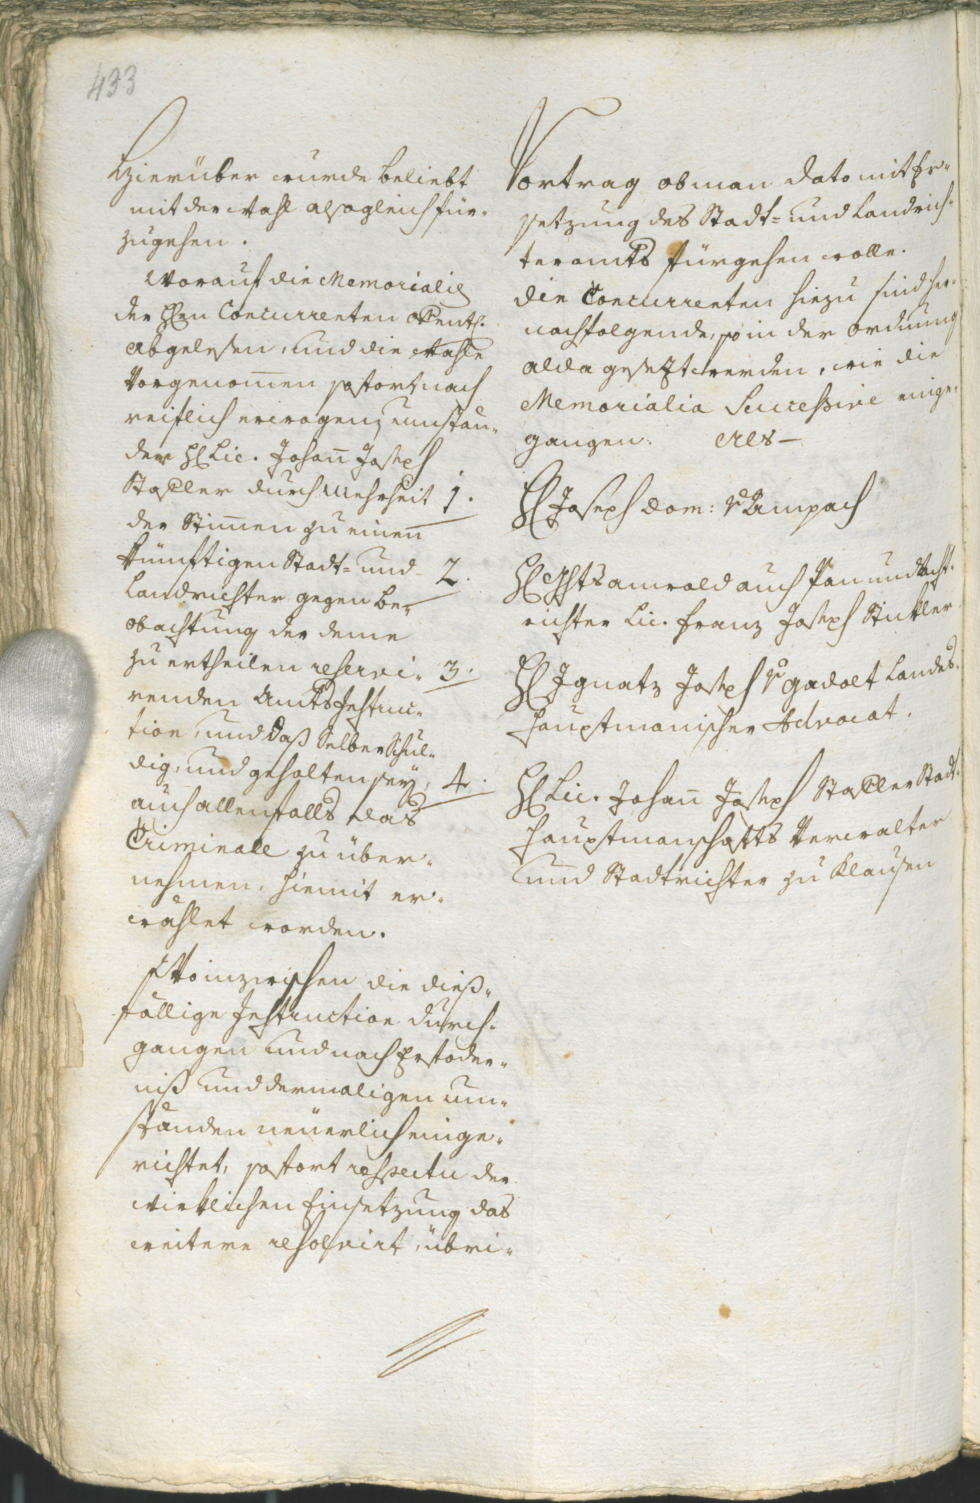 433
Hierüber wurde beliebt
mit der Wahl alsogleich für-
zugehen.
Worauf die Memorialia
der Hrn Concurrenten
abgelesen, und die Wahle
vorgenomen sofort nach
reiflich erwogenen umstän-
den H. Lic. Johann Joseph
Stapler durch Mehrheit
der Stimen zu einem
künftigen Stadt- und
Landrichter gegen be-
obachtung der deme
zu ertheilen reservi-
renden Amts Instruc-
tion, und daß Selber schul-
dig, und gehalten sey,
auch allenfalls das
Criminale zu über-
nehmen, hiemit er-
wählet worden.
Inzwischen die dieß-
fällige Instruction durch-
gangen und nach Erfoder-
niß und dermaligen um-
ständen neüerlich einge-
richtet, sofort respectu der
wirklichen Einsetzung das
weitere resolvirt, übri-
Vortrag ob man dato mit Er-
setzung des Stadt- und Landrich-
teramts fürgehen wolle.
Die Concurrenten hiezu sind her-
nachfolgende, so in der ordnung
alda gesetzt werden, wie die
Memorialia Successive einge-
gangen. als –
1. H. Joseph Dom: v. Ampach
2. H. auch Pan und
richter Lic. Franz Joseph Stickler
3. H. Ignatz Joseph v. Gadolt Landes-
hauptmanischer Advocat.
4. H. Lic. Johann Joseph Stapler Stadt-
hauptmanschafts Verwalter
und Stadtrichter zu Klausen